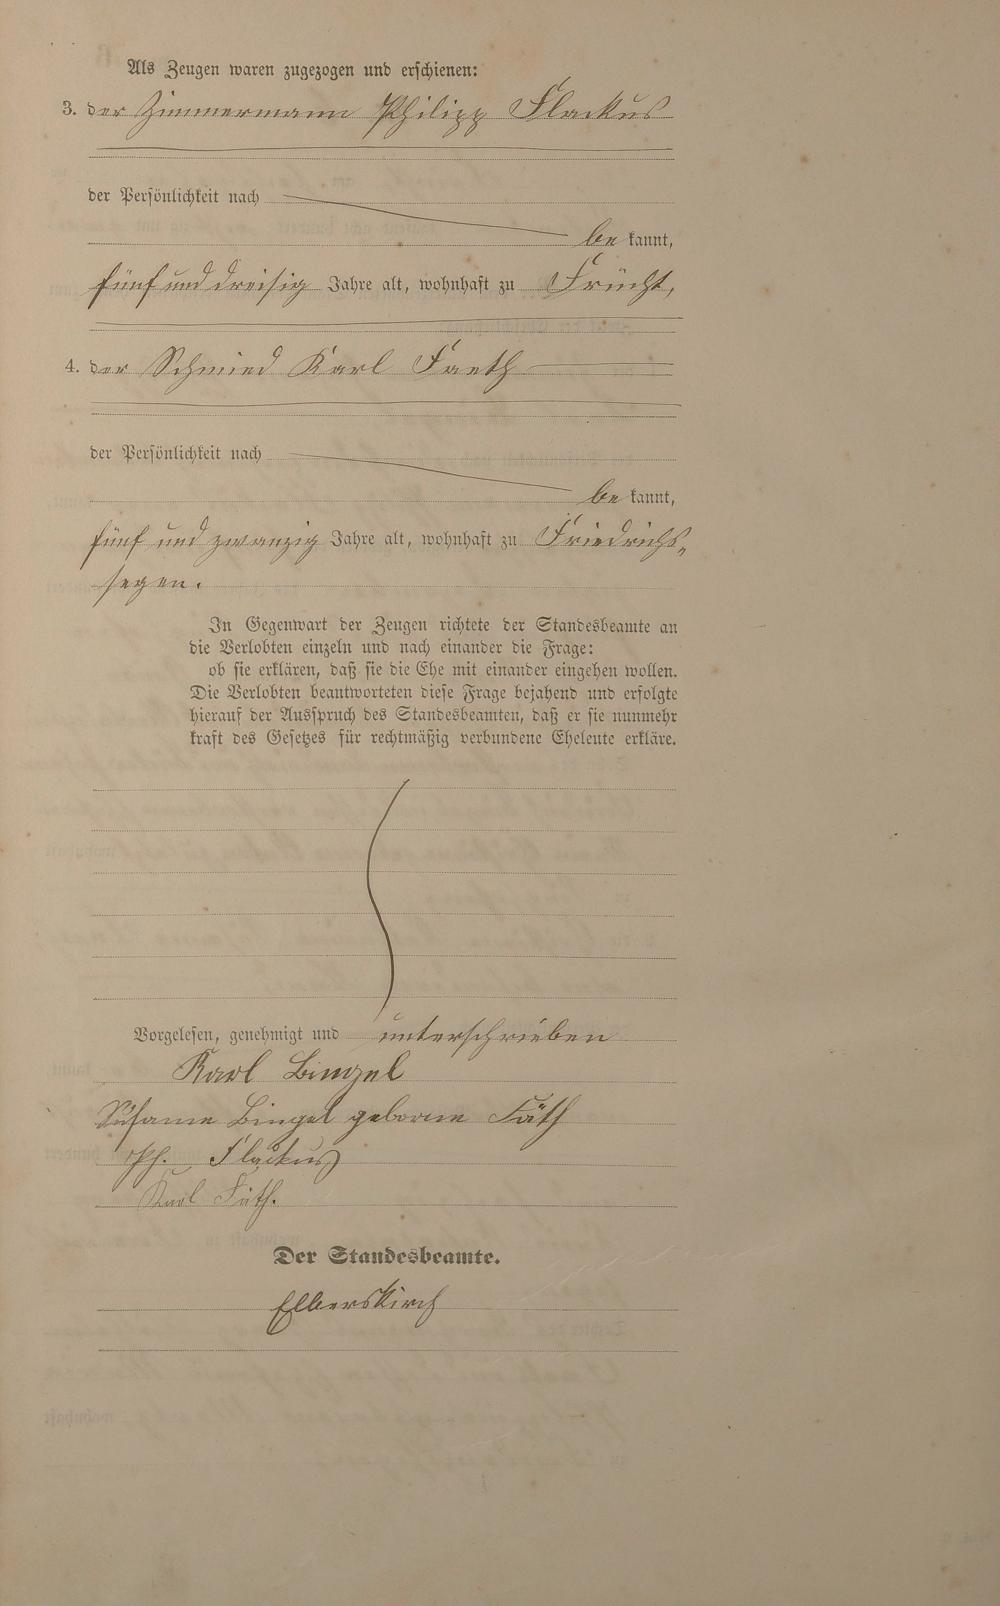 Als Zeugen waren zugezogen und erschienen:
3. der Zimmermann Philipp Flackus
der Persönlichkeit nach
be kannt,
fünf und dreisig Jahre alt, wohnhaft zu Frücht,
4. der Schmied Karl Faeth
der Persönlichkeit nach
be kannt,
fünf und zwanzig Jahre alt, wohnhaft zu Friedrichs-
segen.
In Gegenwart der Zeugen richtete der Standesbeamte an
die Verlobten einzeln und nach einander die Frage:
ob sie erklären, daß sie die Ehe mit einander eingehen wollen.
Die Verlobten beantworteten diese Frage bejahend und erfolgte
hierauf der Ausspruch des Standesbeamten, daß er sie nunmehr
kraft des Gesetzes für rechtmäßig verbundene Eheleute erkläre.
Vorgelesen, genehmigt und unterschrieben
Karl Bingel
Susanne Bingel geborne Fäth
Ph. Flackus
Karl Fäth.
Der Standesbeamte.
Elberskirch